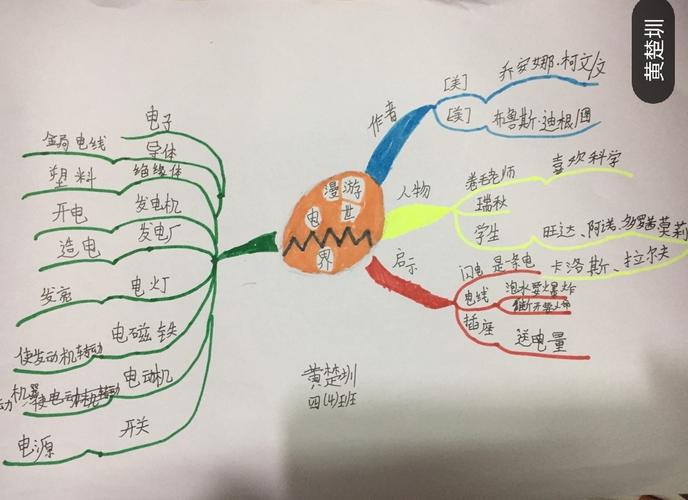 黄楚圳
漫游
电世
界
作者
[美]
乔安娜·柯
[美]
布鲁斯·迪根/图
人物
卷毛老师
喜欢科学
瑞秋
学生
旺达、阿诺、多罗茜、
卡洛斯、拉尔夫
启示
闪电
是一条电
电线
泡水要爆炸
插座
送电量
电子
导体
金属电线
绝缘体
塑料
发电机
开电
发电厂
造电
电灯
发亮
电磁铁
使发动机转动
电动机
开关
电源
黄楚圳
四(4)班